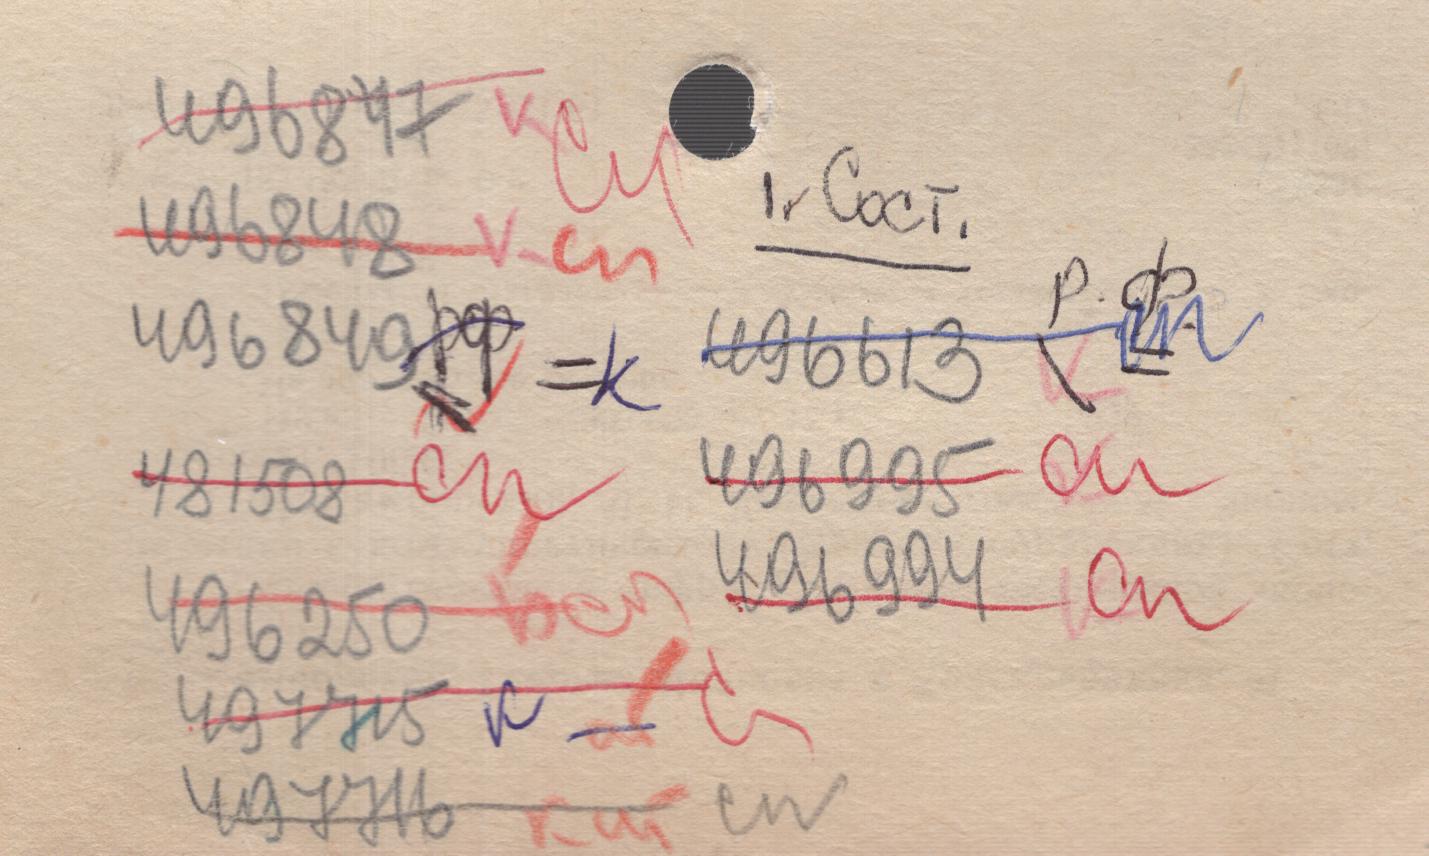 496847 v сп
496848 v сп
496849 рф = к
481508 сп
496250 сп
497715 сп
497716 сп
1. Сост.
496613 р.ф. сп
496995 сп
496994 сп